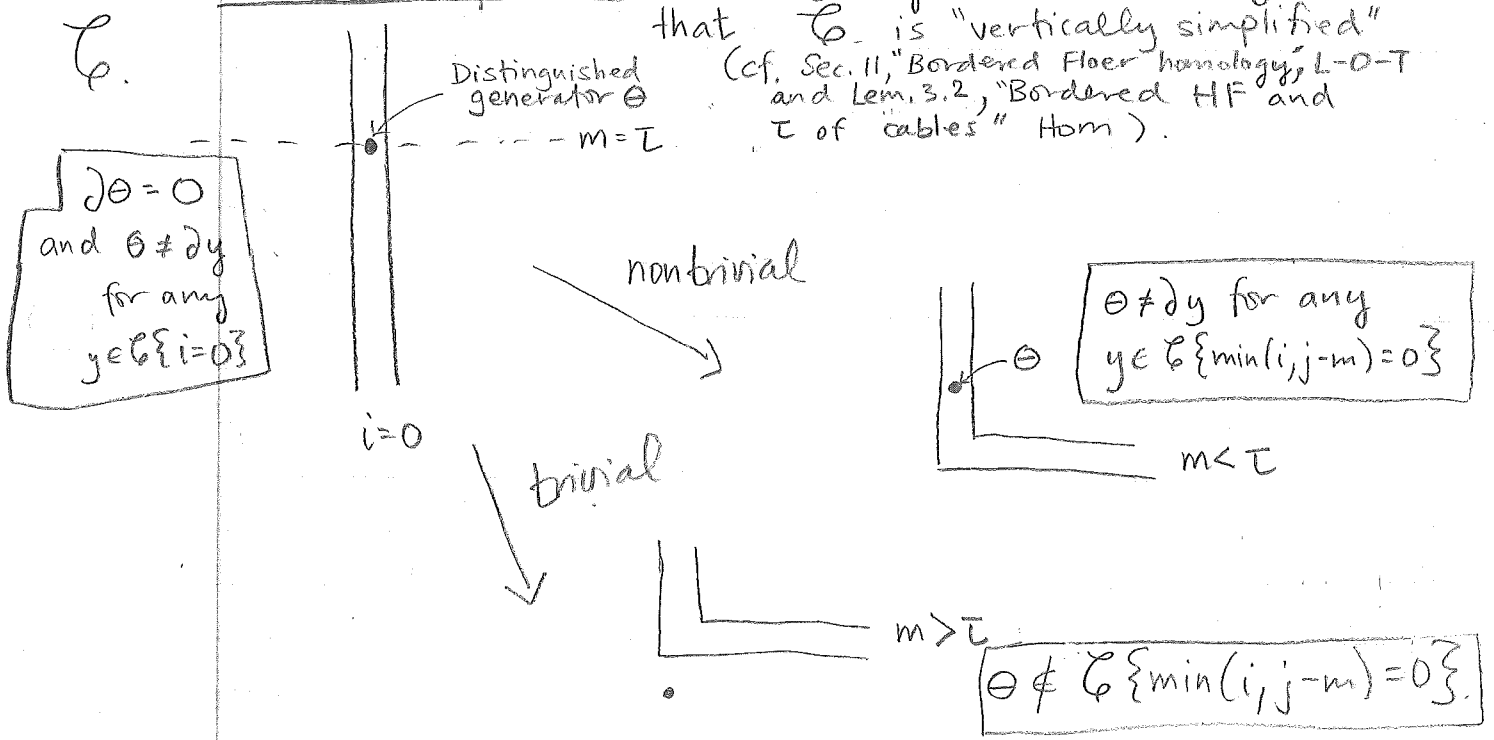 𝒞.
that 𝒞 is "vertically simplified"
(cf. Sec. 11, "Bordered Floer homology," L-O-T
and Lem. 3.2, "Bordered HF and
τ of cables" Hom).
Distinguished
generator Θ
m = τ
∂Θ = 0
and Θ ≠ ∂y
for any
y ∈ 𝒞{i=0}
i=0
nontrivial
Θ
Θ ≠ ∂y for any
y ∈ 𝒞{min(i, j-m) = 0}
m < τ
trivial
m > τ
Θ ∉ 𝒞{min(i, j-m) = 0}.